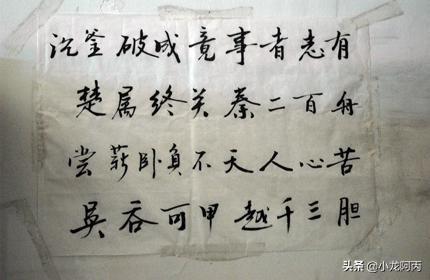 有志者事竟成破釜沉
舟百二秦关终属楚
苦心人天不负卧薪尝
胆三千越甲可吞吴
头条 @小龙阿丙